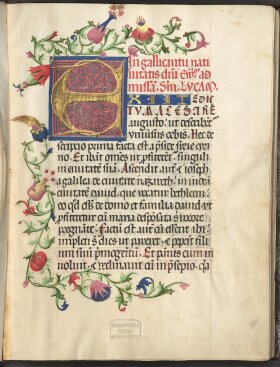 In gallicantu nati
uitatis dñi euã ad
missã. Sm̃. LVCAM.
EXIIT EDIC
TVM A CESARE
augusto: ut describeret̃
uniuersus orbis. Hec de
scriptio prima facta est a preside sirie cyri
no. Et ibãt omnes ut ꝓfiterẽt̃ singuli
in ciuitatẽ suã. Ascendit aut̃ et ioseph
a galilea de ciuitate nazareth in iudeã
ciuitatẽ dauid, que uocat̃ bethleem
eo qd̃ eẽt de domo et familia dauid ut
ꝓfiteret̃ cũ maria desponsata s̃ uxore
pregnãte. Factũ est aut̃ cũ essent ibi
impleti s̃ dies ut pareret. et peperit filiũ
suũ primogenitũ. Et pannis eum in
uoluit, et reclinauit eũ in presepio. q̃a